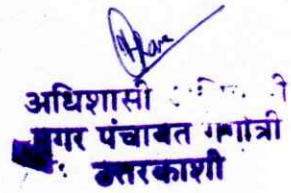 अधिशासी
नगर पंचायत गंगोत्री
उत्तरकाशी